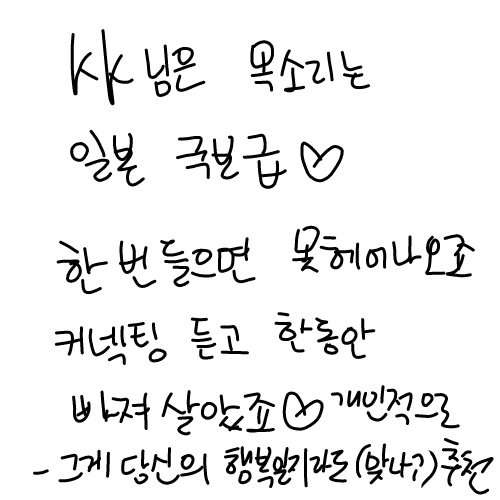 kk님은 목소리는
일본 국보급♡
한 번 들으면 못헤어나오죠
커넥팅 듣고 한동안
빠져 살았죠♡ 개인적으로
- 그게 당신의 행복일지라도 (맞나?) 추천